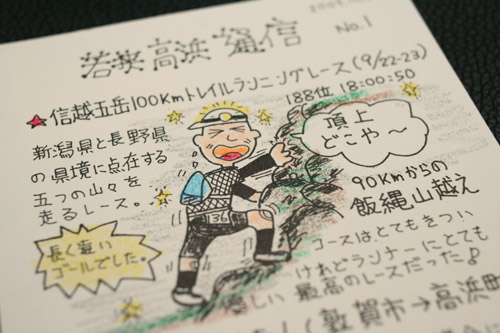 若狭高浜通信
No.1
★信越五岳100Kmトレイルランニングレース(9/22-23)
188位 18:00:50
新潟県と長野県
の県境に点在する
五つの山々を
走るレース。
頂上
どこや〜
90Kmからの
飯縄山越え
136
長く遠い
ゴールでした。
コースはとてもきつい
けれどランナーにとても
優しい最高のレースだった!
(敦賀市→高浜町